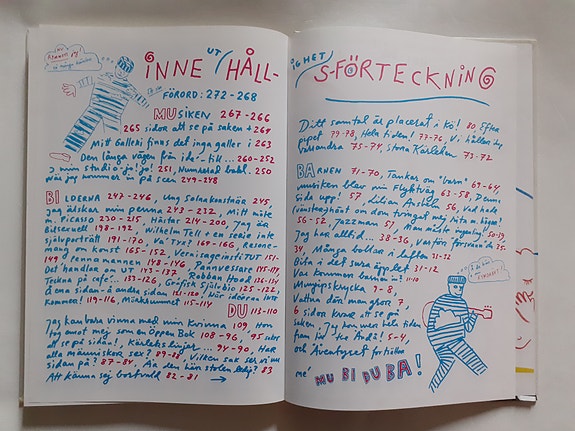 INNE UT/HÅLL-
FÖRORD: 272-268
MUSIKEN 267-266
265 sidor att se på saken + 264
Mitt Galleri finns det inga galler i 263
Den långa vägen från idé - till ... 260-252
I min studio ja! jo! 251, Numrerat babl. 250
När jag kommer in på scen 249-248
BILDERNA 247-246, Ung Solnakonstnär 245,
Jag älskar min penna 243-232, Mitt möte
m. Picasso 230-215, Gitarrhästar 214-200, Jag är
Bildsnuell 198-192, Wilhelm Tell + en serie inte
självporträtt 191-170, Va' Tyx? 169-166, Resone-
mang om konst 165-152, Vernisageinsti TUT 151-
149 Pennamannen 148-146, Tannvessare 145-137,
Det handlar om UT 143-137 Robban Hood 136-134
Teckna på café... 133-126, Grafisk Självbio 125-122,
Å ena sidan - å andra sidan 121-120, När idéerna inte
Kommer! 119-116, Mäktkummet 115-114
DU 113-110
Jag kan bara vinna med min kvinna 109, Hon
Tog emot mej som en Öppen Bok 108-96, 95 sätt
att se på sidan!, Kärleks linjer ... 94-90, Har
alla människor sex? 89-88, Vilken sak ser vi med
sidan på? 87-84, Aa den här stolen ledig? 83
Att känna sej bortvald 82-81 →
IGHET
S-FÖRTECKNING
Ditt samtal är placerat i kö! 80, Efter
pipet 79-78, Hela tiden! 77-76, Vi håller i
varandra 75-74, Stora Kärleken 73-72
BARNEN 71-70, Tankar om "barn" 69-64,
musiken blev min flyktväg 63-58, Denna
sida upp! 57, Lilian Aspleln 56, Vad hade
56-52, Jazzman 51, Man måste ingenting 50-39
Jag har alltid ... 38-36, Varför försvann de 35-
34, Många bollar i luften 31-32
Bita i det sura äpplet 31-12
Var kommer barnen in? 11-10
Mungipskrycka 9-8,
Vattna den man gror 7,
6 sidor kvar att se på
saken, Jag kom hela tiden
fram till the And! 5-4,
och Äventyret fortsätter
me' MU BI DU BA!